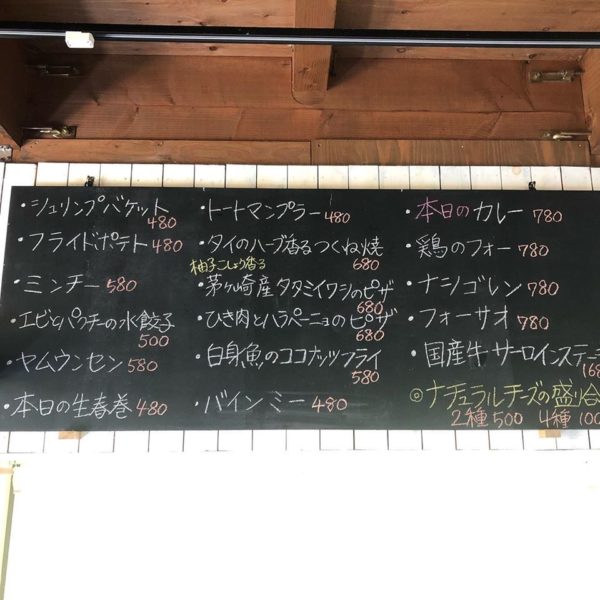 ・シュリンプバケット 480
・フライドポテト 480
・ミンチー 580
・エビとパクチーの水餃子 500
・ヤムウンセン 580
・本日の生春巻 480
・トートマンプラー 480
・タイのハーブ香るつくね焼 680
柚子こしょう香る
・茅ヶ崎産タタミイワシのピザ 680
・ひき肉とハラペーニョのピザ 680
・白身魚のココナッツフライ 580
・バインミー 480
・本日のカレー 780
・鶏のフォー 780
・ナシゴレン 780
・フォーサオ 780
・国産牛サーロインステーキ 168
◎ナチュラルチーズの盛り合
2種 500 4種 100